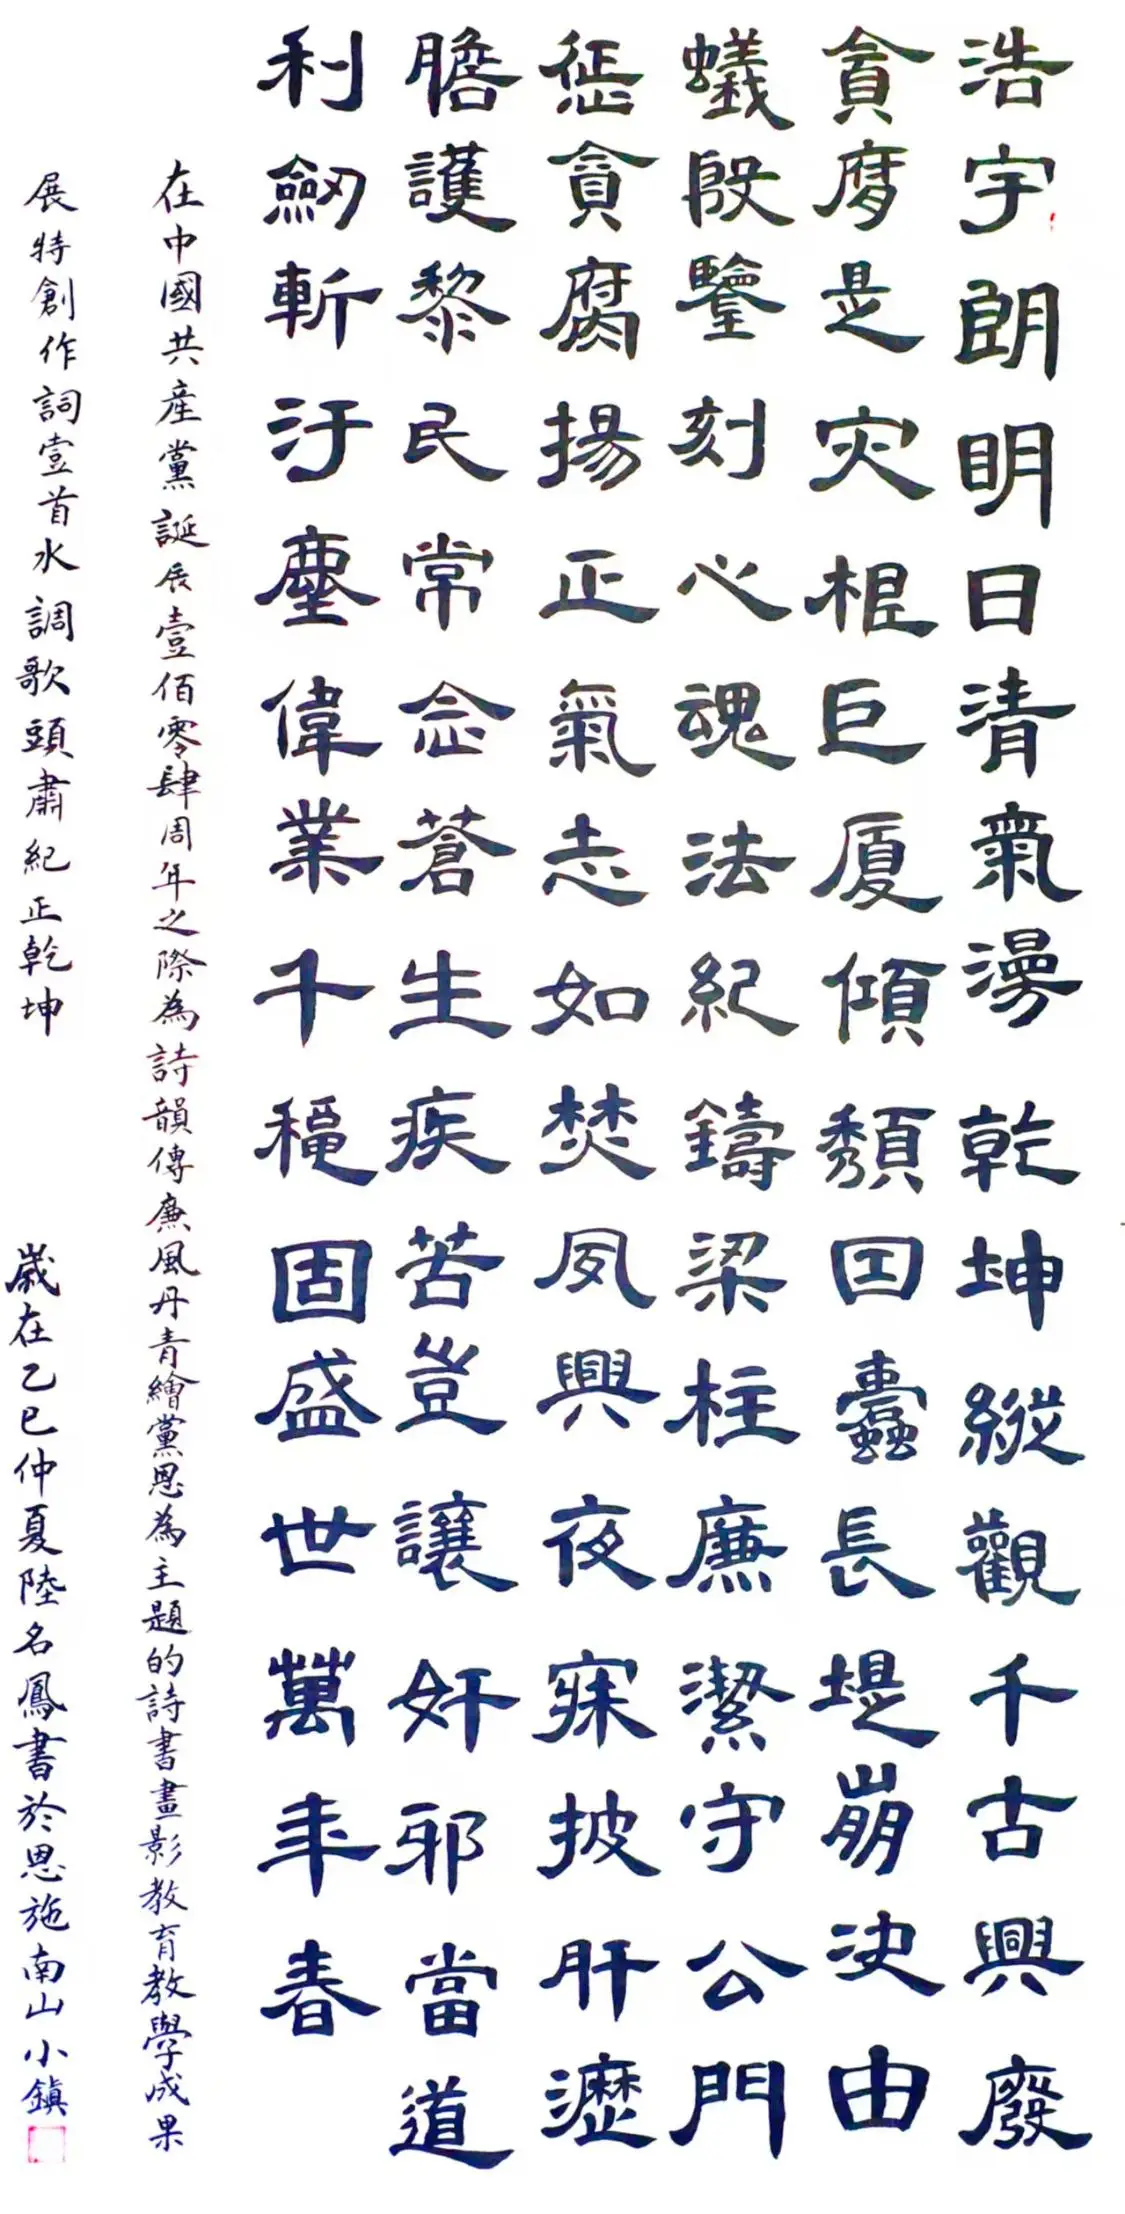 浩宇朗明日清氣漫乾坤縱觀千古興廢
貪腐是灾根巨厦傾頹因蠹長堤崩决由
蟻殷鑒刻心魂法紀鑄梁柱廉潔守公門
惩貪腐揚正氣志如焚夙興夜寐披肝瀝
膽護黎民常念蒼生疾苦豈讓奸邪當道
利劒斬汙塵偉業千穐固盛世萬年春
在中國共產黨誕辰壹佰零肆周年之際為詩韻傳廉風丹青繪黨恩為主題的詩書畫影教育教學成果
展特創作詞壹首水調歌頭肅紀正乾坤
歲在乙巳仲夏陸名鳳書於恩施南山小鎮